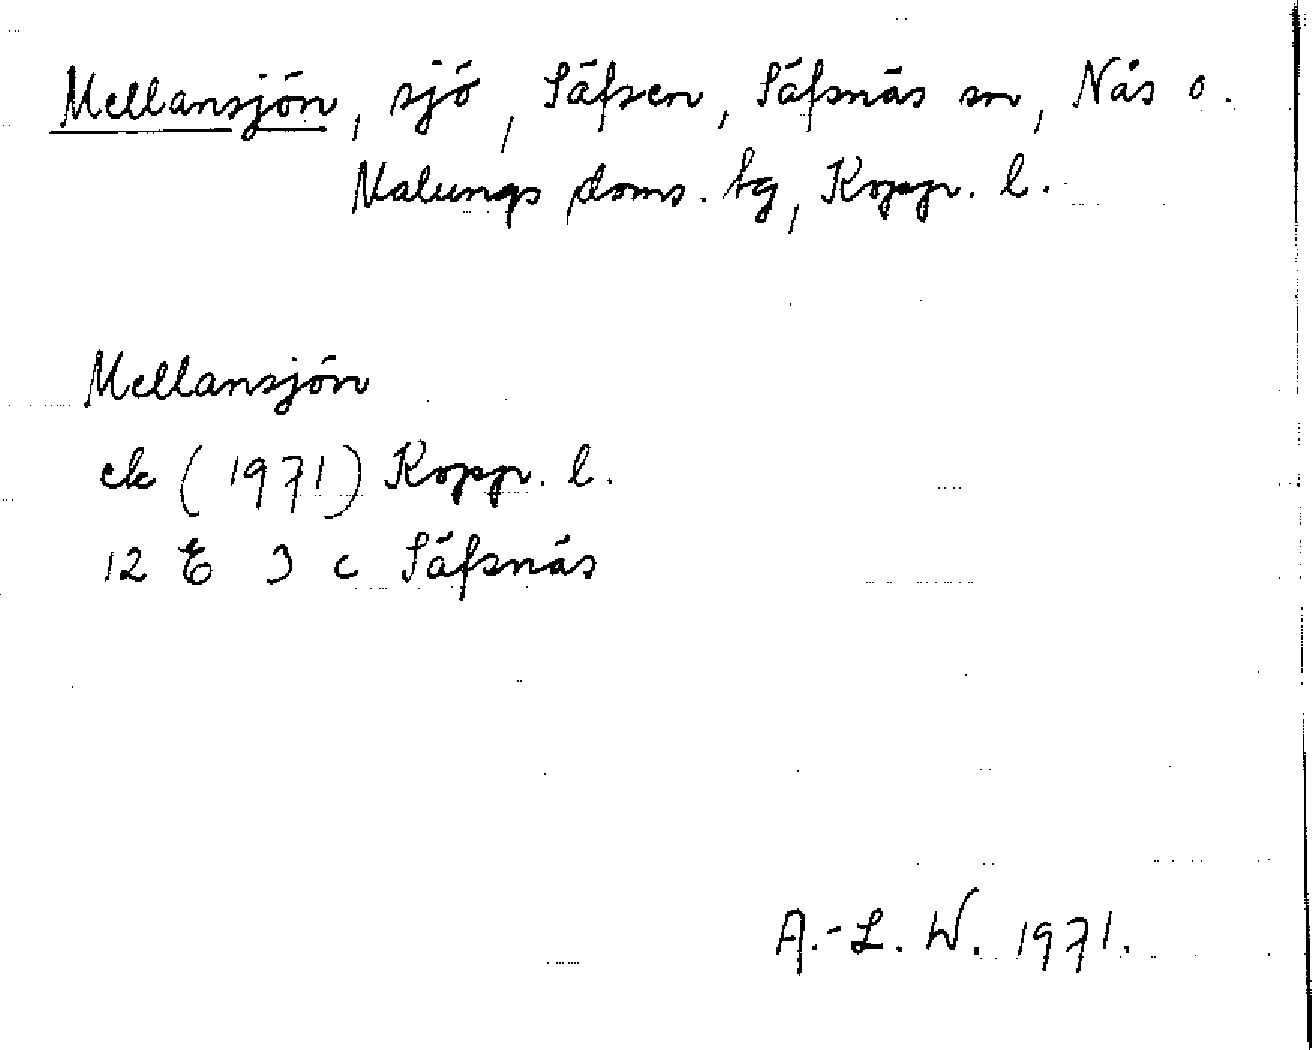 Mellansjön, sjö, Säfsen, Säfsnäs sn, Nås o.
Malungs doms. tg, Koppr. l.
Mellansjön
ek (1971) Koppr. l.
12 E 3 c Säfsnäs
A.-L. W. 1971.